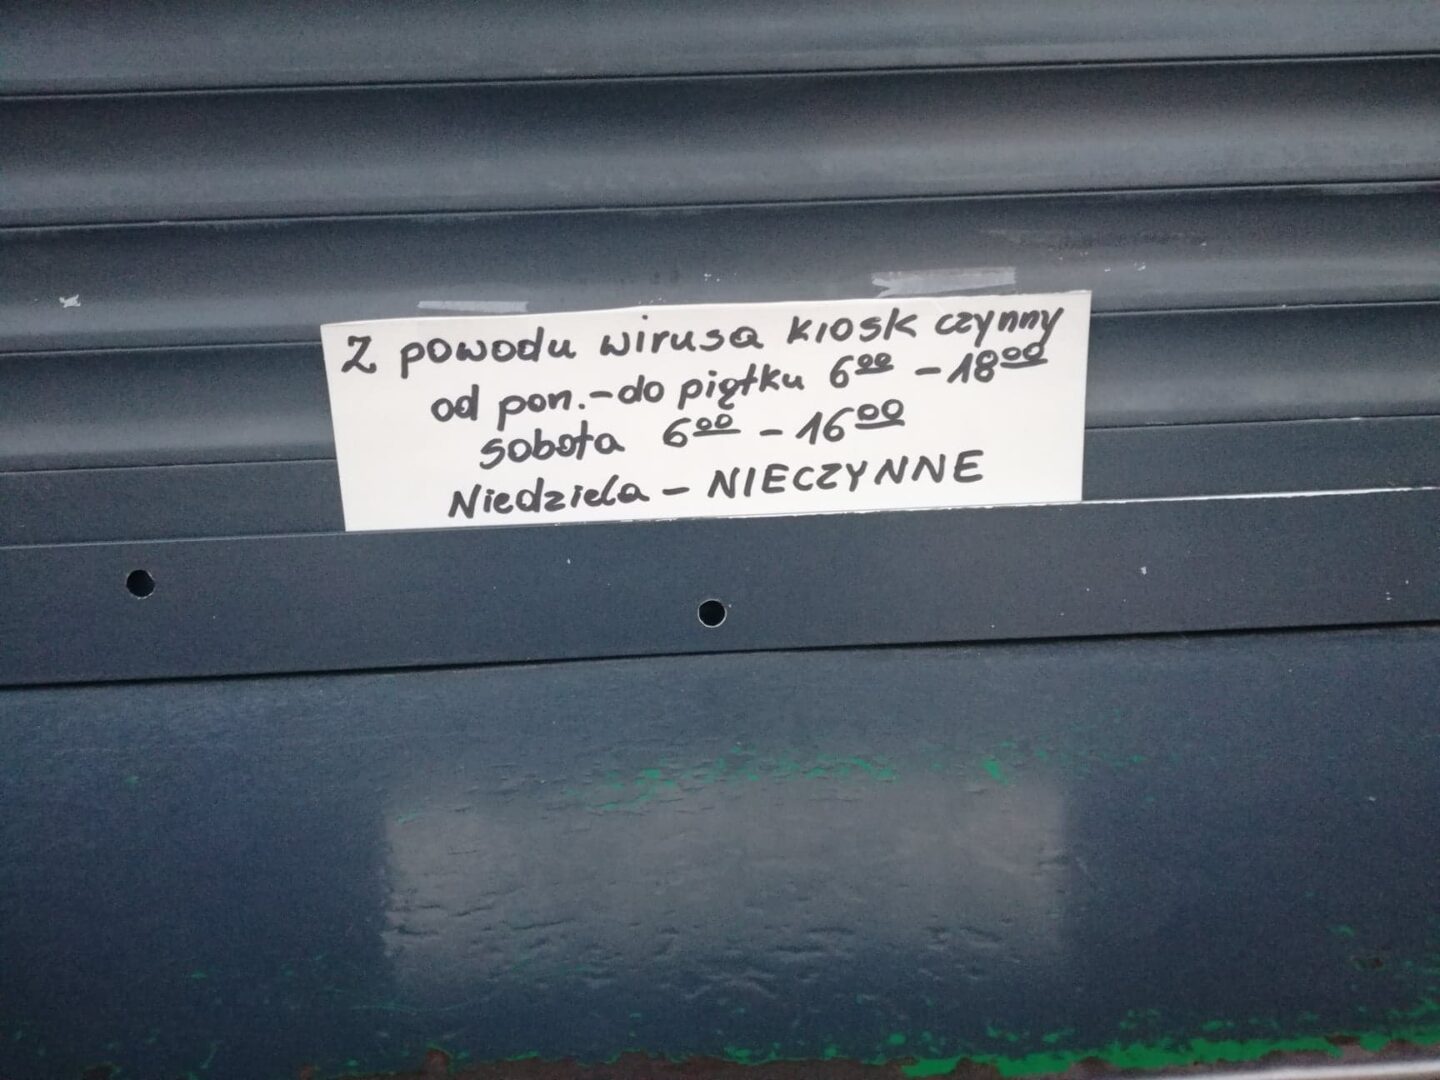 Z powodu wirusa kiosk czynny
od pon. - do piątku 6⁰⁰ - 18⁰⁰
sobota 6⁰⁰ - 16⁰⁰
Niedziela - NIECZYNNE